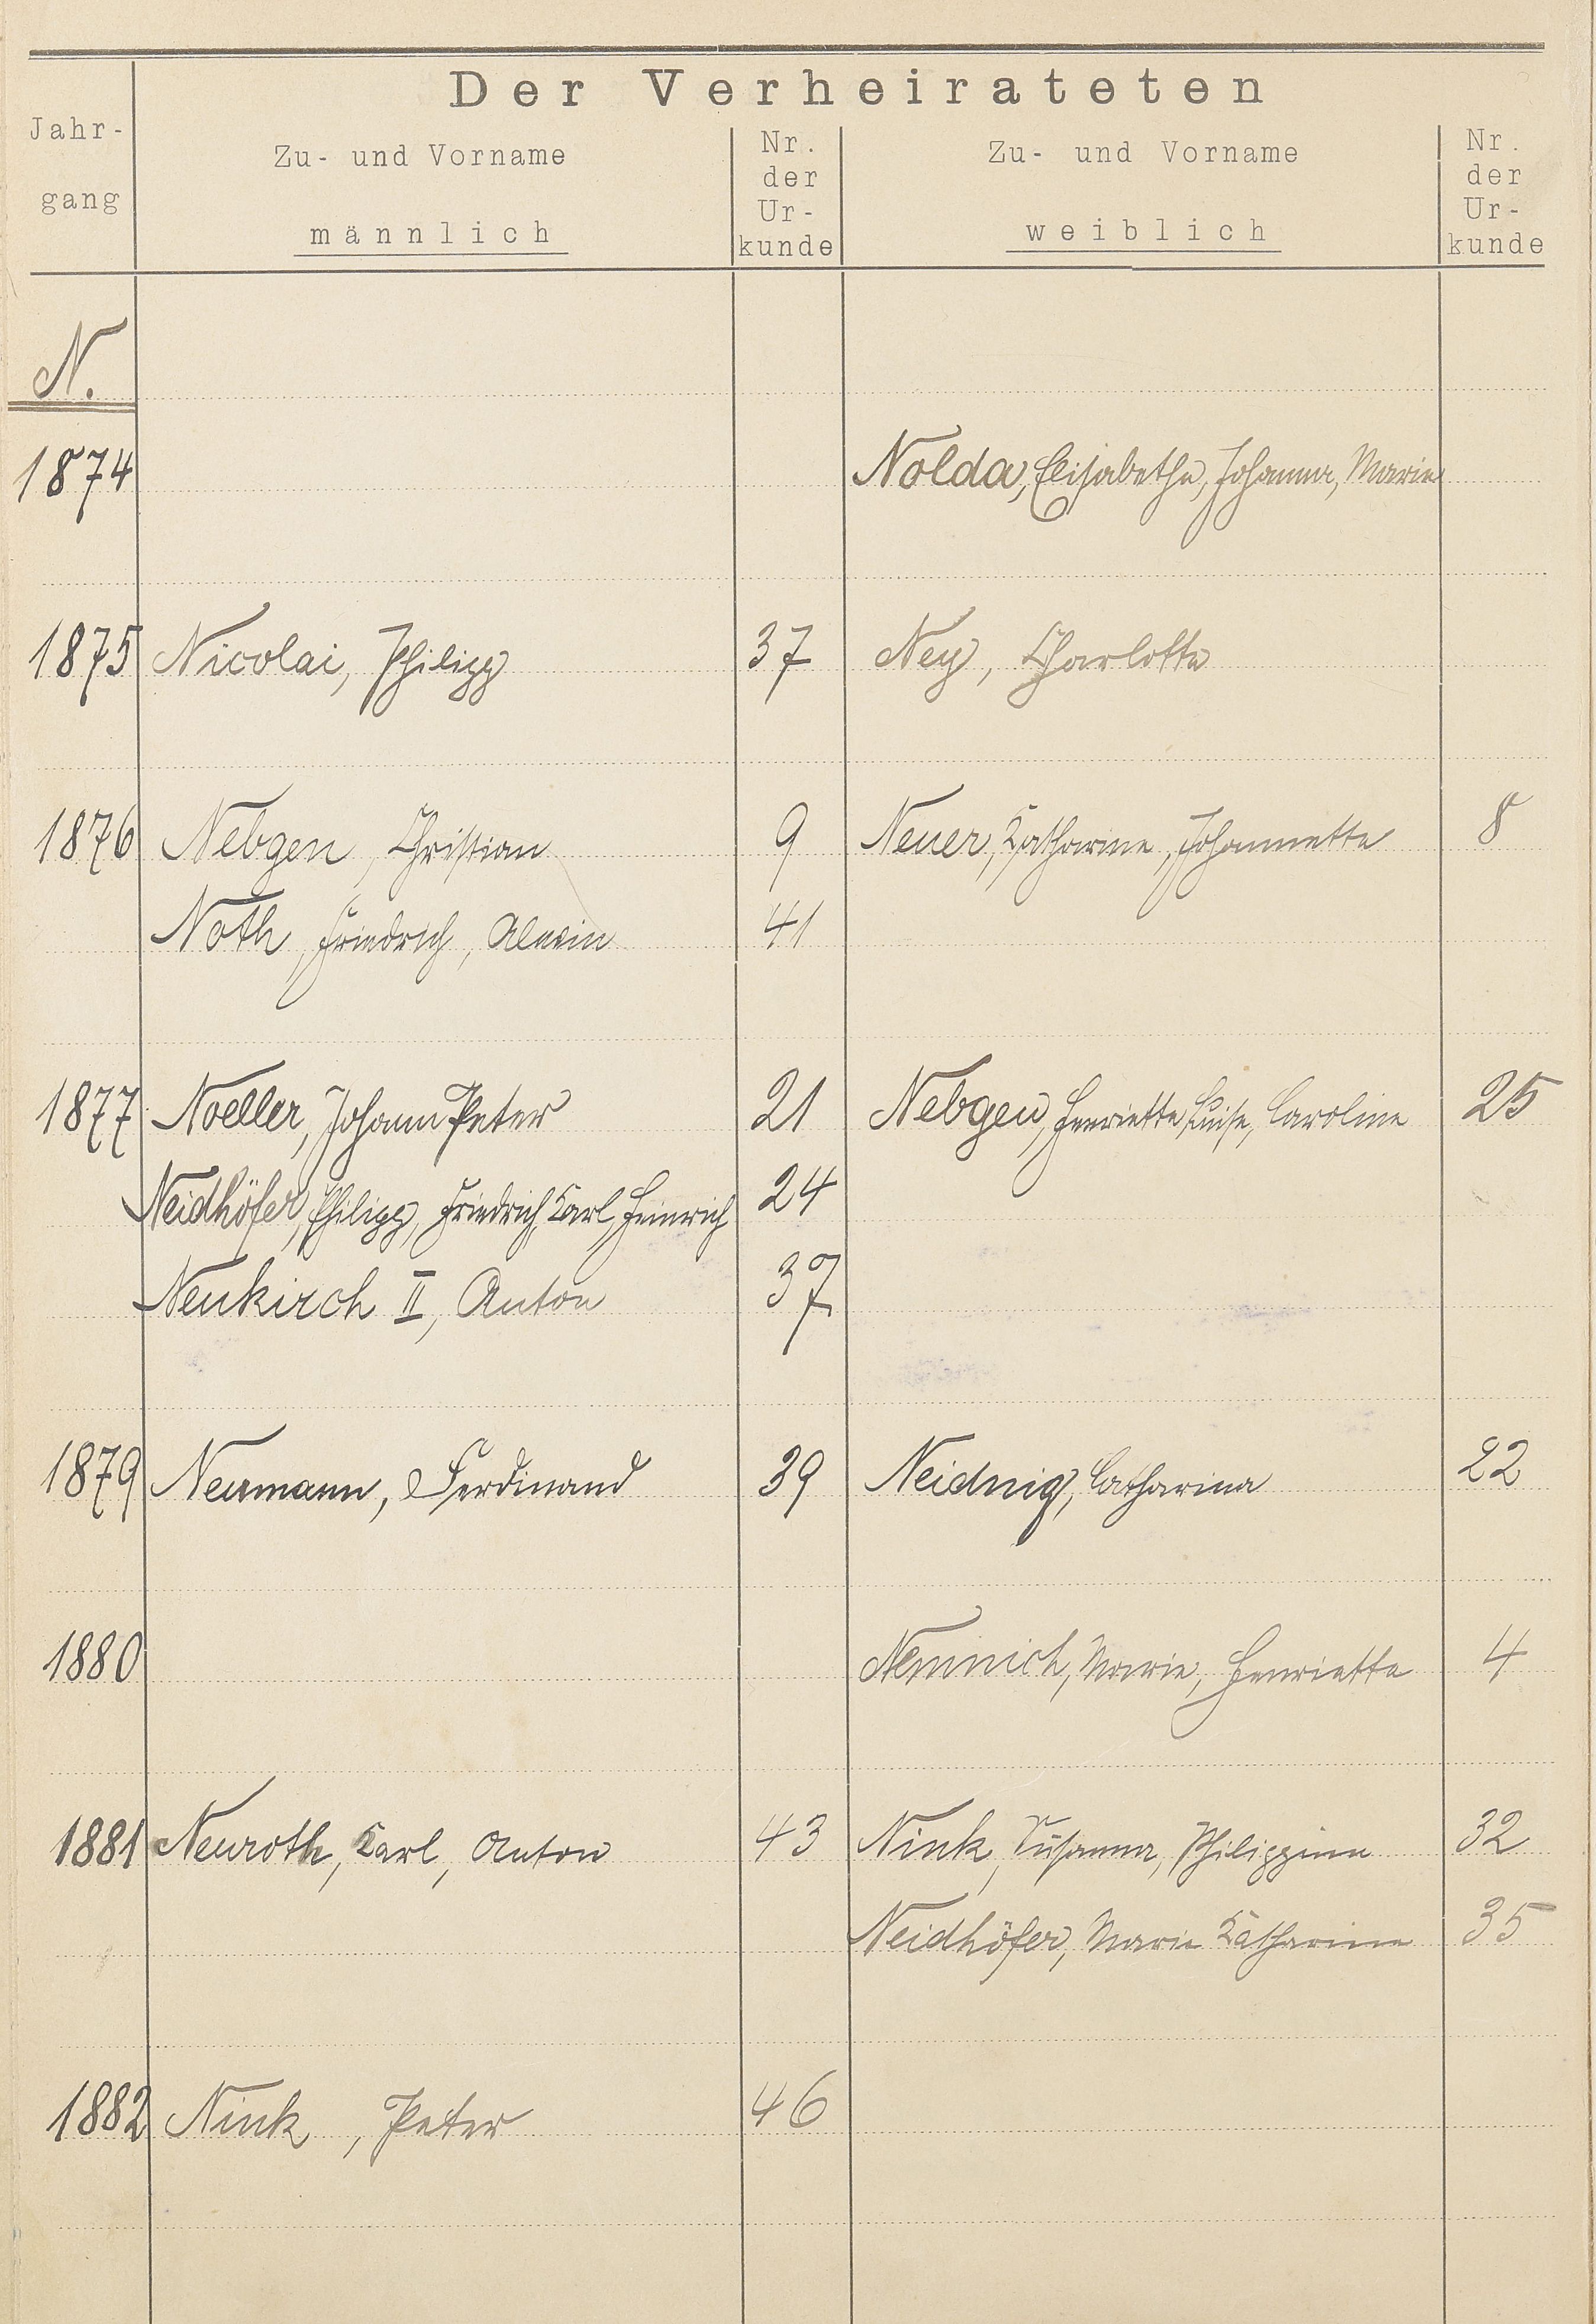 Der Verheirateten
Jahrgang Zu- und Vorname männlich Nr. der Urkunde Zu- und Vorname weiblich Nr. der Urkunde
N.
1874 Nolda, Elisabethe, Johanna, Marie
1875 Nicolai, Philipp 37 Ney, Charlotte
1876 Nebgen, Christian 9 Neuer, Katharine, Johannette 8
Noth, Friedrich, Alwin 41
1877 Noeller, Johann Peter 21 Nebgen, Henriette Luise, Caroline 25
Neidhöfer, Philipp, Friedrich, Karl, Heinrich 24
Neukirch II, Anton 37
1879 Neumann, Ferdinand 39 Neidnig, Catharina 22
1880 Nemnich, Marie, Henriette 4
1881 Neuroth, Karl, Anton 43 Nink, Susanna, Philippine 32
Neidhöfer, Marie Katharine 35
1882 Nink, Peter 46